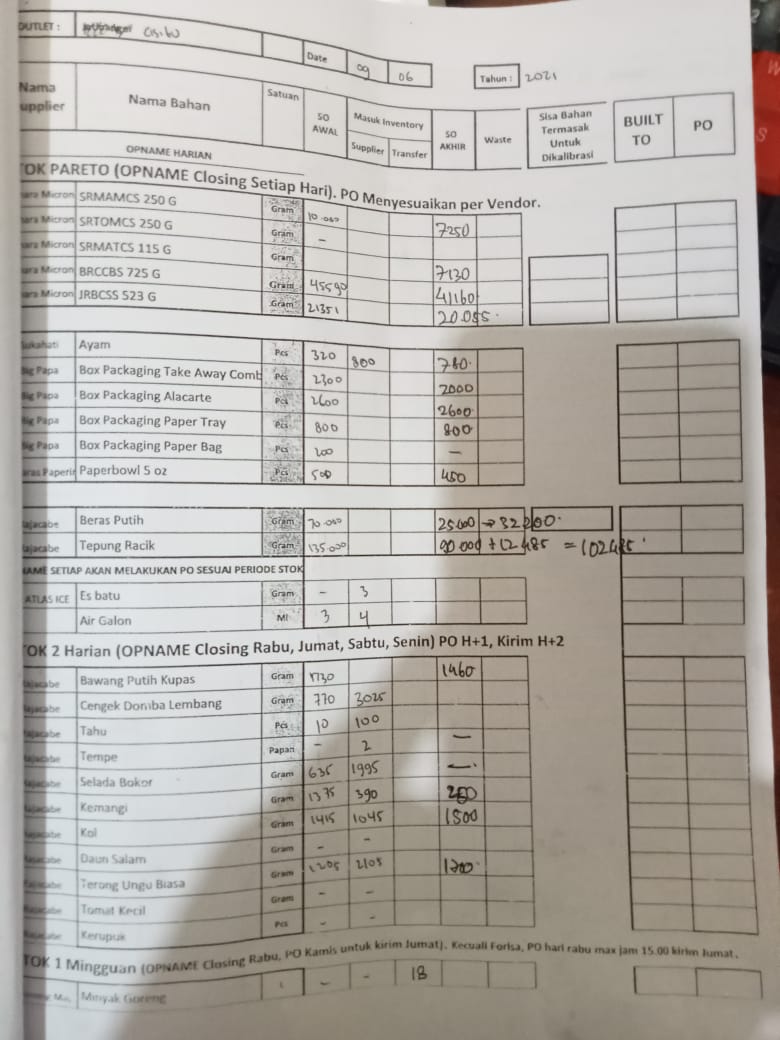 OUTLET : Cisitu
Date 09 06 Tahun : 2021
Nama Supplier Nama Bahan Satuan SO AWAL Masuk Inventory Supplier Transfer SO AKHIR Waste Sisa Bahan Termasak Untuk Dikalibrasi BUILT TO PO
OPNAME HARIAN
TOK PARETO (OPNAME Closing Setiap Hari). PO Menyesuaikan per Vendor.
ara Micron SRMAMCS 250 G Gram 10.000 7250
ara Micron SRTOMCS 250 G Gram -
ara Micron SRMATCS 115 G Gram 7130
ara Micron BRCCBS 725 G Gram 45590 41160
ara Micron JRBCSS 523 G Gram 21351 20.055
Sukahati Ayam Pcs 320 800 780
Big Papa Box Packaging Take Away Comb Pcs 2300 2000
Big Papa Box Packaging Alacarte Pcs 2600 2600
Big Papa Box Packaging Paper Tray Pcs 800 800
Big Papa Box Packaging Paper Bag Pcs 200 -
aras Paperin Paperbowl 5 oz Pcs 500 450
Rajacabe Beras Putih Gram 70.000 25.000 → 32200
Rajacabe Tepung Racik Gram 135.000 90.000 + 12485 = 102485
NAME SETIAP AKAN MELAKUKAN PO SESUAI PERIODE STOK
ATLAS ICE Es batu Gram - 3
Air Galon Ml 3 4
TOK 2 Harian (OPNAME Closing Rabu, Jumat, Sabtu, Senin) PO H+1, Kirim H+2
Rajacabe Bawang Putih Kupas Gram 1730 1460
Rajacabe Cengek Domba Lembang Gram 770 3025
Rajacabe Tahu Pcs 10 100
Rajacabe Tempe Papan - 2 -
Rajacabe Selada Bokor Gram 635 1995 -
Rajacabe Kemangi Gram 1375 390
Rajacabe Kol Gram 1415 1045 1500
Rajacabe Daun Salam Gram - -
Rajacabe Terong Ungu Biasa Gram 1205 2105 1200
Rajacabe Tomat Kecil Gram - -
Rajacabe Kerupuk Pcs - -
TOK 1 Mingguan (OPNAME Closing Rabu, PO Kamis untuk kirim Jumat). Kecuali Forisa, PO hari rabu max jam 15.00 kirim Jumat.
Minyak Goreng L - - 18